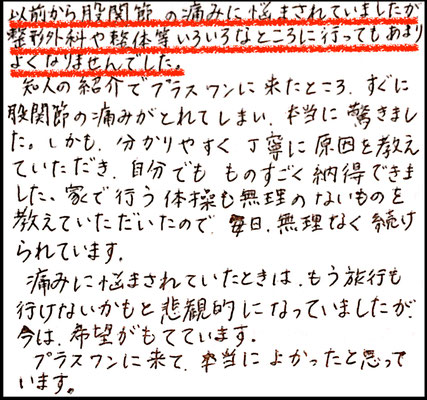 以前から股関節の痛みに悩まされていましたが
整形外科や整体等いろいろなところに行ってもあまり
よくなりませんでした。
知人の紹介でプラスワンに来たところ、すぐに
股関節の痛みがとれてしまい、本当に驚きまし
た。しかも、分かりやすく丁寧に原因を教え
ていただき、自分でもものすごく納得できま
した、家で行う体操も無理のないものを
教えていただいたので、毎日、無理なく続け
られています。
痛みに悩まされていたときは、もう旅行も
行けないかもと悲観的になっていましたが、
今は、希望がもてています。
プラスワンに来て、本当によかったと思って
います。